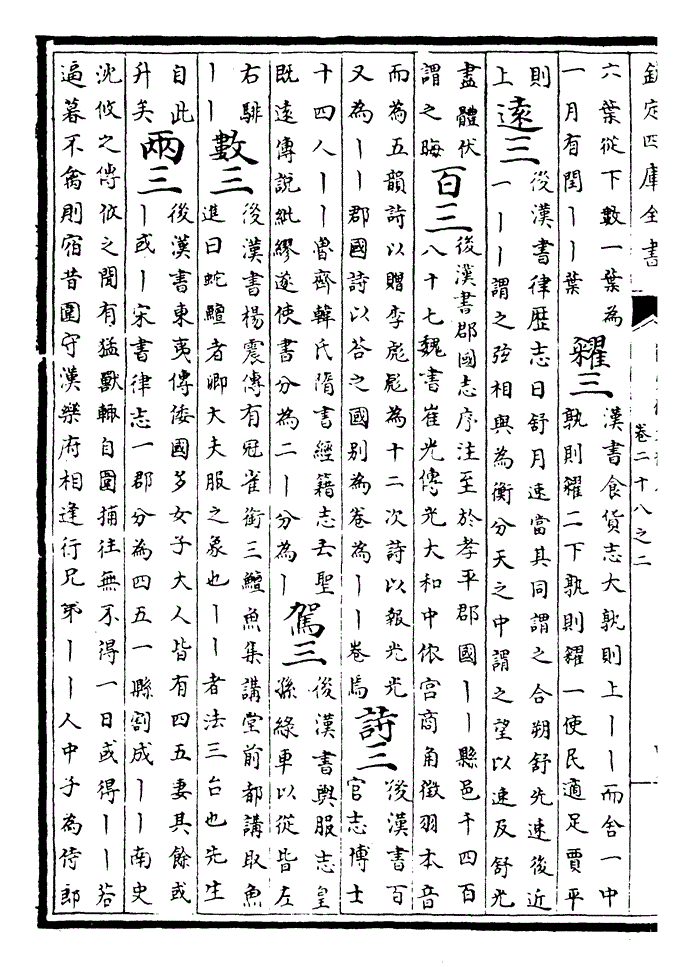 欽定四庫全書
卷二十八之二
六葉從下數一葉為
一月有閏丨丨葉
糴三
漢書食貨志大孰則上丨丨而舍一中
孰則糴二下孰則糴一使民適足賈平
則
上
遠三
後漢書律歴志日舒月速當其同謂之合朔舒先速後近
一丨丨謂之弦相與為衡分天之中謂之望以速及舒光
盡體伏
謂之晦
百三
後漢書郡國志序注至於孝平郡國丨丨縣邑千四百
八十七魏書崔光傳光大和中依宫商角徵羽本音
而為五韻詩以贈李彪彪為十二次詩以報光光
又為丨丨郡國詩以荅之國别為卷為丨丨卷焉
詩三
後漢書百
官志博士
十四人丨丨魯齊韓氏隋書經籍志云聖
既遠傳說紕繆遂使書分為二丨分為丨
駕三
後漢書輿服志皇
孫綠車以從皆左
右騑
丨丨
數三
後漢書楊震傳有冠雀銜三鱣魚集講堂前都講取魚
進曰蛇鱣者卿大夫服之象也丨丨者法三台也先生
自此
升矣
兩三
後漢書東夷傳倭國多女子大人皆有四五妻其餘或
丨或丨宋書律志一郡分為四五一縣割成丨丨南史
沈攸之傳攸之聞有猛獸輒自圍捕往無不得一日或得丨丨若
逼暮不禽則宿昔圍守漢樂府相逢行兄弟丨丨人中子為侍郎